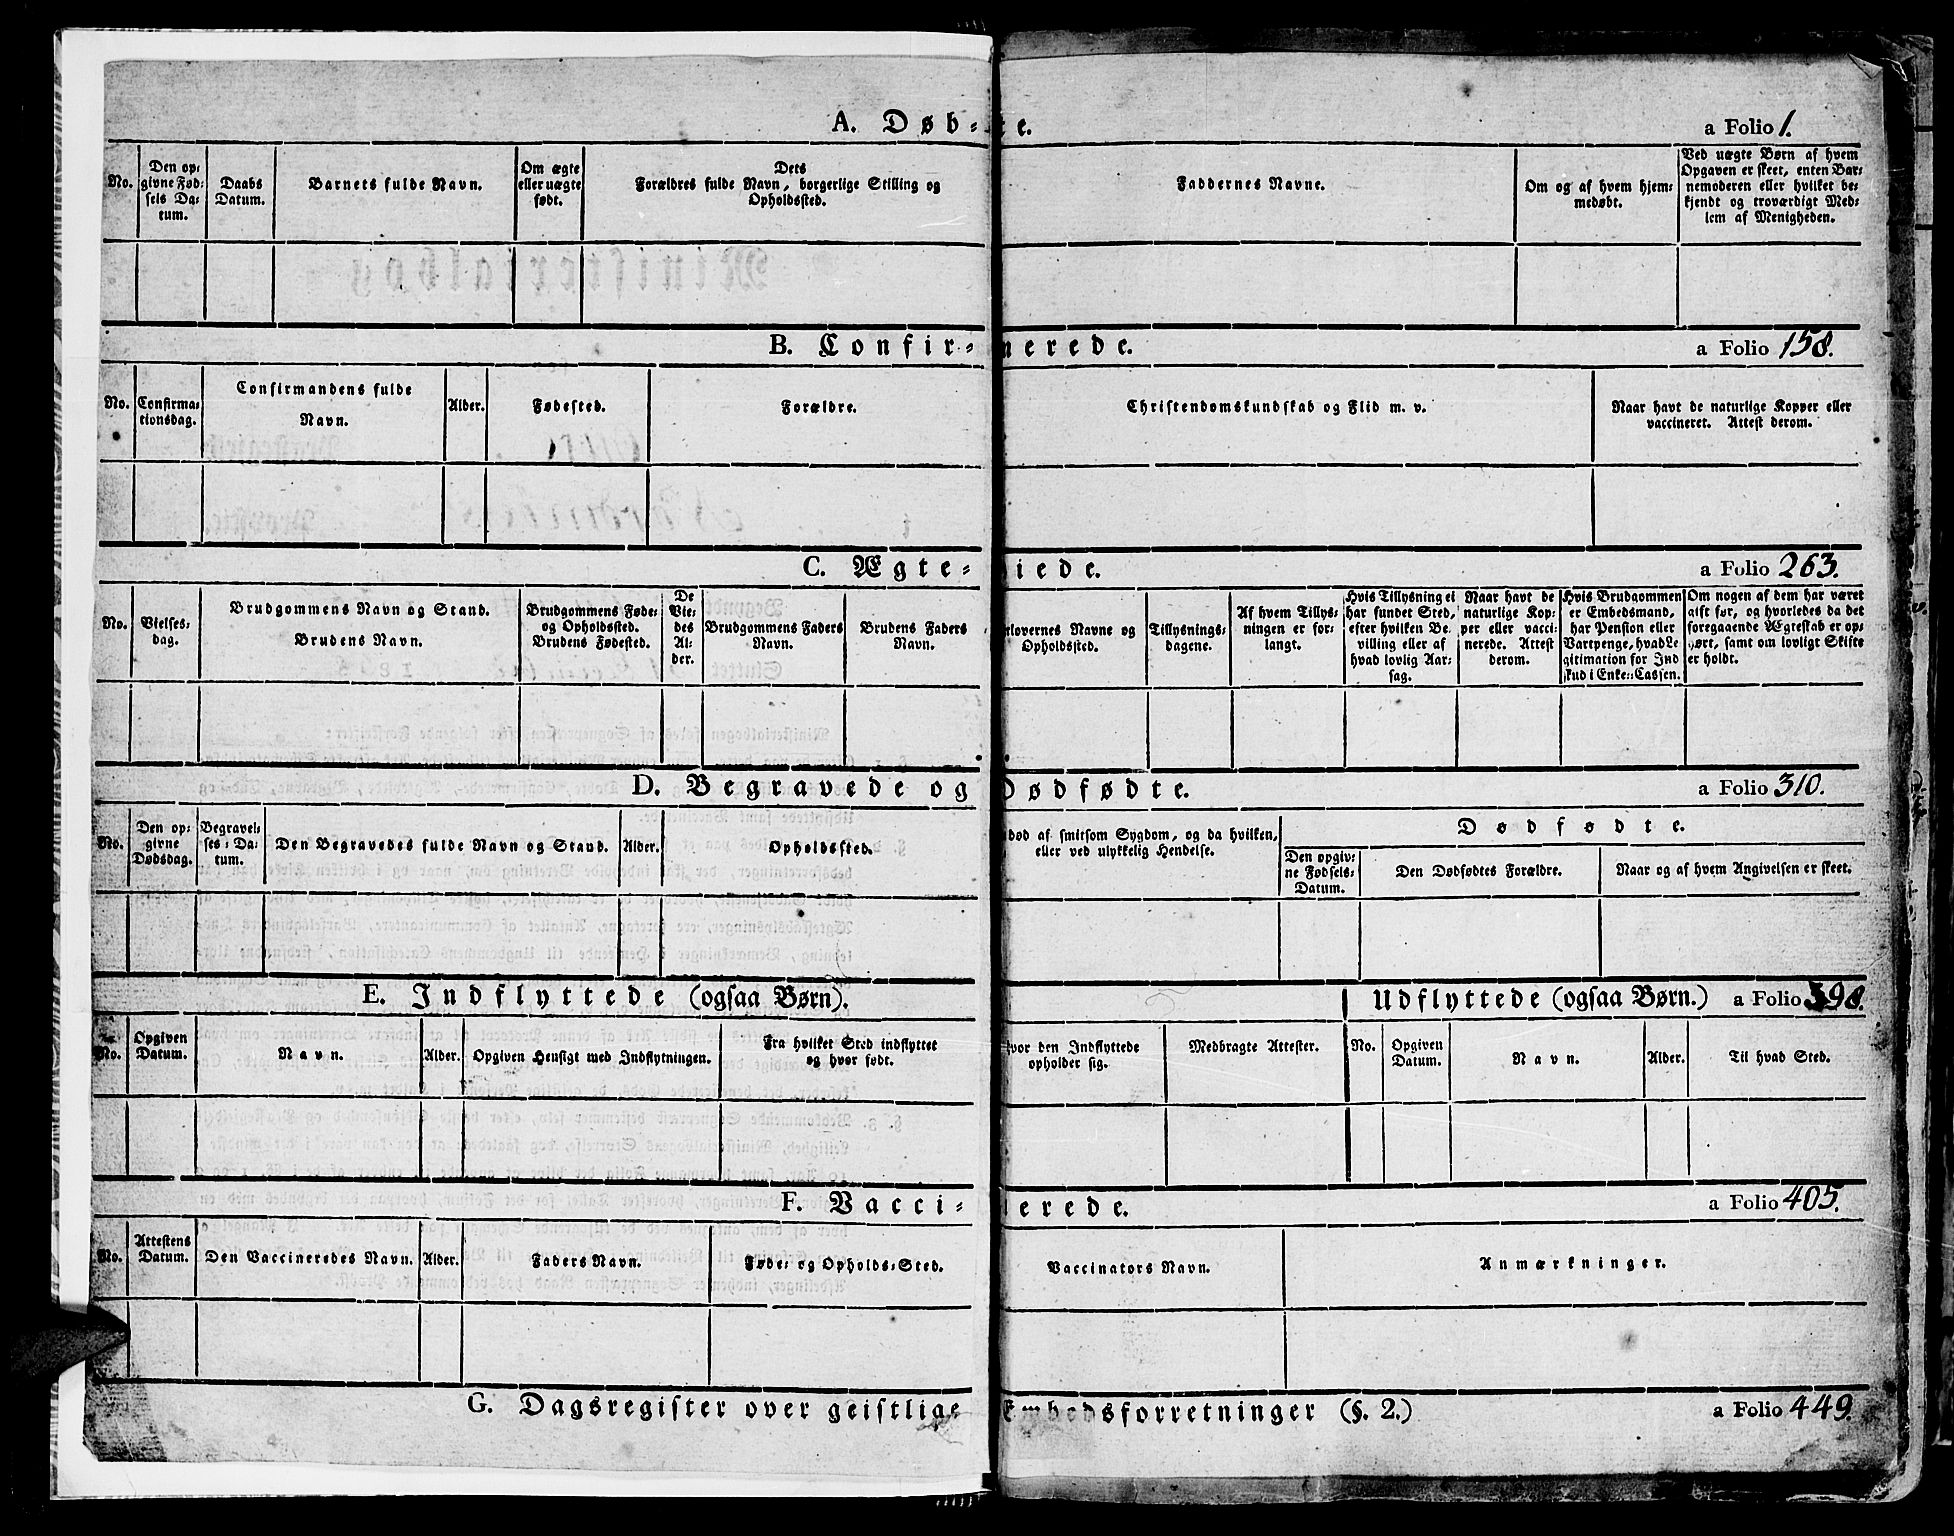 A. Døb-te. a Folio 1.
No.
Den op-
givne Fød-
sels Da-
tum.
Daabs
Datum.
Barnets fulde Navn.
Om ægte
eller uægte
født.
Dets
Forældres fulde Navn, borgerlige Stilling og
Opholdssted.
Faddernes Navne.
Om og af hvem hjem-
medøbt.
Ved uægte Børn af hvem
Opgaven er skeet, enten Bar-
nemoderen eller hvilket be-
kjendt og troværdigt Med-
lem af Menigheden.
B. Confir-merede. a Folio 158.
No.
Confirma-
tionsdag.
Confirmandens fulde
Navn.
Alder.
Fødested.
Forældre.
Christendomskundskab og Flid m. v.
Naar havt de naturlige Kopper eller
vaccineret. Attest derom.
C. Ægte-viede. a Folio 263.
No.
Vielses-
dag.
Brudgommens Navn og Stand.
Brudens Navn.
Brudgommens Føde-
og Opholdssted.
Brudens Fødested.
De
Vie-
des
Al-
der.
Brudgommens Faders
Navn.
Brudens Faders
Navn.
rlovernes Navne og
Opholdssted.
Tillysnings-
dagene.
Af hvem Tillys-
ningen er for-
langt.
Hvis Tillysning ei
har fundet Sted,
efter hvilken Be-
villing eller af
hvad lovlig Aar-
sag.
Naar havt de
naturlige Kop-
per eller vacci-
nerede. Attest
derom.
Hvis Brudgommen
er Embedsmand,
har Pension eller
Vartpenge, hvad Le
gitimation for Ind
skud i Enke-Cassen.
Om nogen af dem har været
gift før, og hvorledes da det
foregaaende Ægteskab er op-
hørt, samt om lovligt Skifte
er holdt.
D. Begravede og Dødfødte. a Folio 310.
No.
Den op-
givne
Dødsdag.
Begravel-
ses-Da-
tum.
Den Begravedes fulde Navn og Stand.
Alder.
Opholdssted.
død af smitsom Sygdom, og da hvilken,
eller ved ulykkelig Hendelse.
Dødfødte.
Den opgiv-
ne Fødsels-
Datum.
Den Dødfødtes Forældre.
Naar og af hvem Angivelsen er skeet.
E. Indflyttede (ogsaa Børn). Udflyttede (ogsaa Børn.) a Folio 398.
No.
Opgiven
Datum.
Navn.
Alder.
Opgiven Hensigt med Indflytningen.
Fra hvilket Sted indflyttet
og hvor født.
vor den Indflyttede
opholder sig.
Medbragte Attester.
No.
Opgiven
Datum.
Navn.
Alder.
Til hvad Sted.
F. Vacci-nerede. a Folio 405.
No.
Attestens
Datum.
Den Vaccineredes Navn.
Alder.
Faders Navn.
Føde- og Opholds-Sted.
Vaccinators Navn.
Anmærkninger.
G. Dagsregister over geistlige Embedsforretninger (§. 2.) a Folio 449.